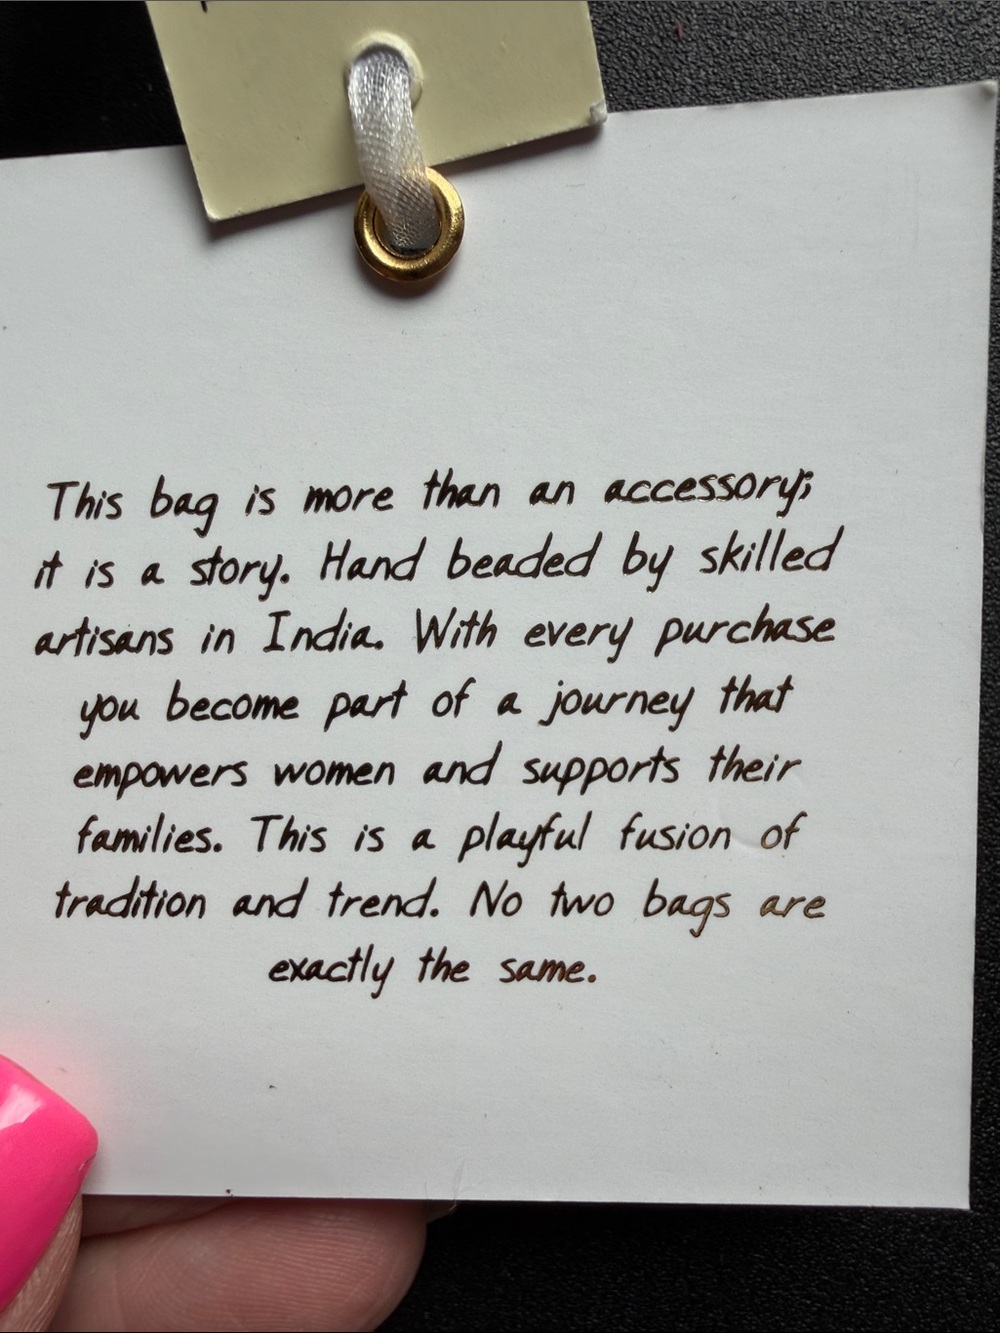 This bag is more than an accessory;
it is a story. Hand beaded by skilled
artisans in India. With every purchase
you become part of a journey that
empowers women and supports their
families. This is a playful fusion of
tradition and trend. No two bags are
exactly the same.